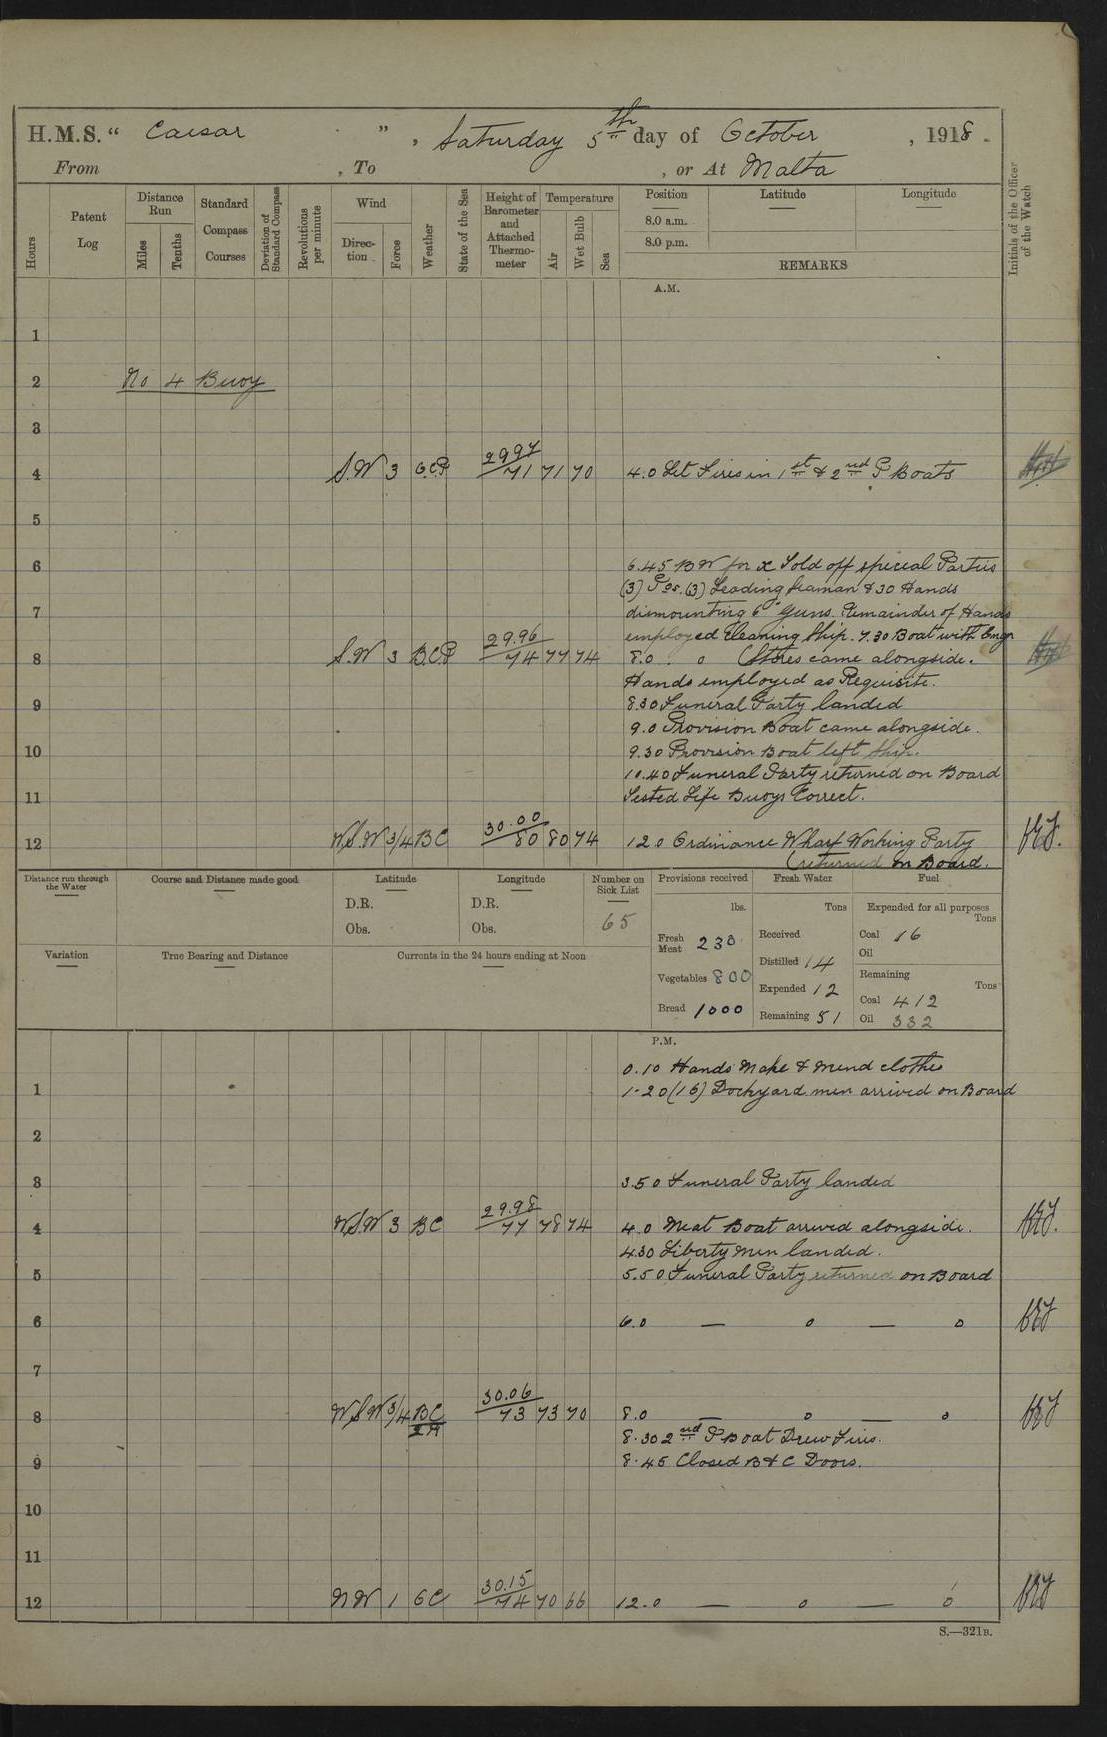 H.M.S. “ Caesar ” , Saturday 5th day of October , 1918 .
From , To , or At Malta
Hours Patent Log Distance Run Miles Tenths Standard Compass Courses Deviation of Standard Compass Revolutions per minute Wind Direc-tion Force Weather State of the Sea Height of Barometer and Attached Thermo-meter Temperature Air Wet Bulb Sea Position Latitude Longitude Initials of the Officer of the Watch
8.0 a.m.
8.0 p.m.
REMARKS
A.M.
1
2 No 4 Buoy
3
4 S.W 3 29.97/71 71 70 4.0 Lit Fires in 1st & 2nd P Boats
5
6 6.45 for Told off special Parties
(3) (3) Leading Seaman & 30 Hands
7 dismounting 6" Guns. Remainder of Hands
employed Cleaning Ship. 7.30 Boat with Engr
8 S.W 3 B.C.P 29.96/74 77 74 8.0 (Stores came alongside.
Hands employed as Requisite.
9 8.30 Funeral Party landed
9.0 Provision Boat came alongside.
10 9.30 Provision Boat left Ship.
10.40 Funeral Party returned on Board
11 Tested Life Buoys Correct.
12 W.S.W 3/4 BC 30.00/80 80 74 12.0 Ordinance Wharf Working Party
(returned on Board.
Distance run through the Water Course and Distance made good Latitude Longitude Number on Sick List Provisions received Fresh Water Fuel
D.R. D.R. lbs. Tons Expended for all purposes Tons
Obs. Obs. 65 Fresh Meat 230 Received Coal 16
Oil
Variation True Bearing and Distance Currents in the 24 hours ending at Noon Distilled 14 Remaining
Vegetables 800 Expended 12 Tons
Coal 412
Bread 1000 Remaining 51 Oil 332
P.M.
0.10 Hands Make & Mend clothes
1 1-20 (16) Dockyard men arrived on Board
2
3 3.50 Funeral Party landed
4 W.S.W 3 BC 29.98/77 78 74 4.0 Meat Boat arrived alongside.
4.30 Liberty men landed.
5 5.50 Funeral Party returned on Board
6 6.0 — 0 — 0
7
8 W.S.W 3/4 BC 30.06/73 73 70 8.0 — 0 — 0
8.30 2nd P Boat Drew Fires.
9 8.45 Closed B & C Doors.
10
11
12 NW 1 30.15/74 70 66 12.0 — 0 — 0
S.—321B.